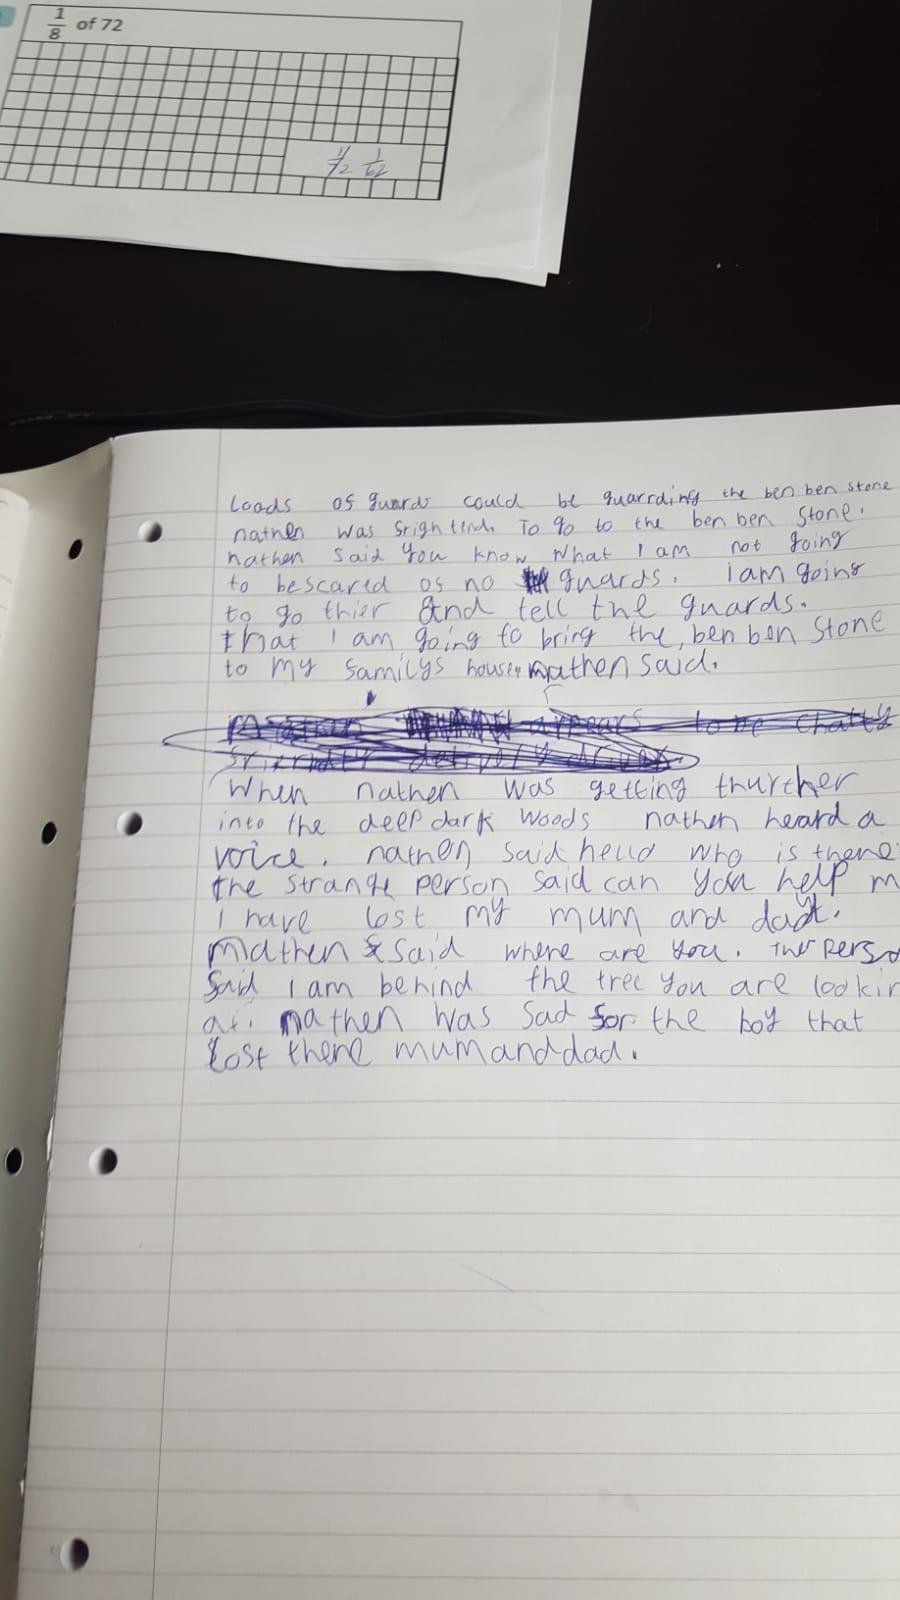 1/8 of 72
loads of guards could be guarrding the ben ben stone
nathen was frightend. To go to the ben ben stone.
nathen said you know what I am not going
to be scared of no guards. I am going
to go thier and tell the guards.
that I am going to bring the ben ben stone
to my familys house nathen said.
appears to be chatty
delivery driver.
When nathen was getting thurther
into the deep dark woods nathen heard a
voice. nathen said hello who is there
the strange person said can you help m
I have lost my mum and dad.
nathen said where are you. The perso
said I am behind the tree you are lookin
at. nathen was sad for the boy that
lost there mum and dad.